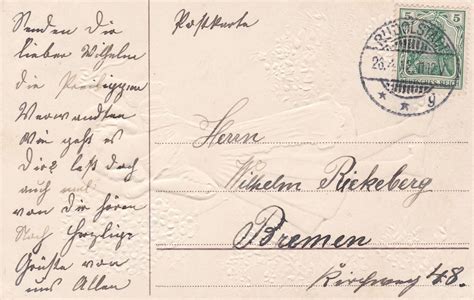 Senden Dir
lieber Wilhelm
die
Verwandten
Wie geht es
Dir? laß doch
auch mal
von Dir hören
Noch Herzliche
Grüße von
uns Allen
Postkarte
5 5
DEUTSCHES REICH
RUDOLSTADT
g
Herrn
Wilhelm Riekeberg
Bremen
Kirchweg 48.